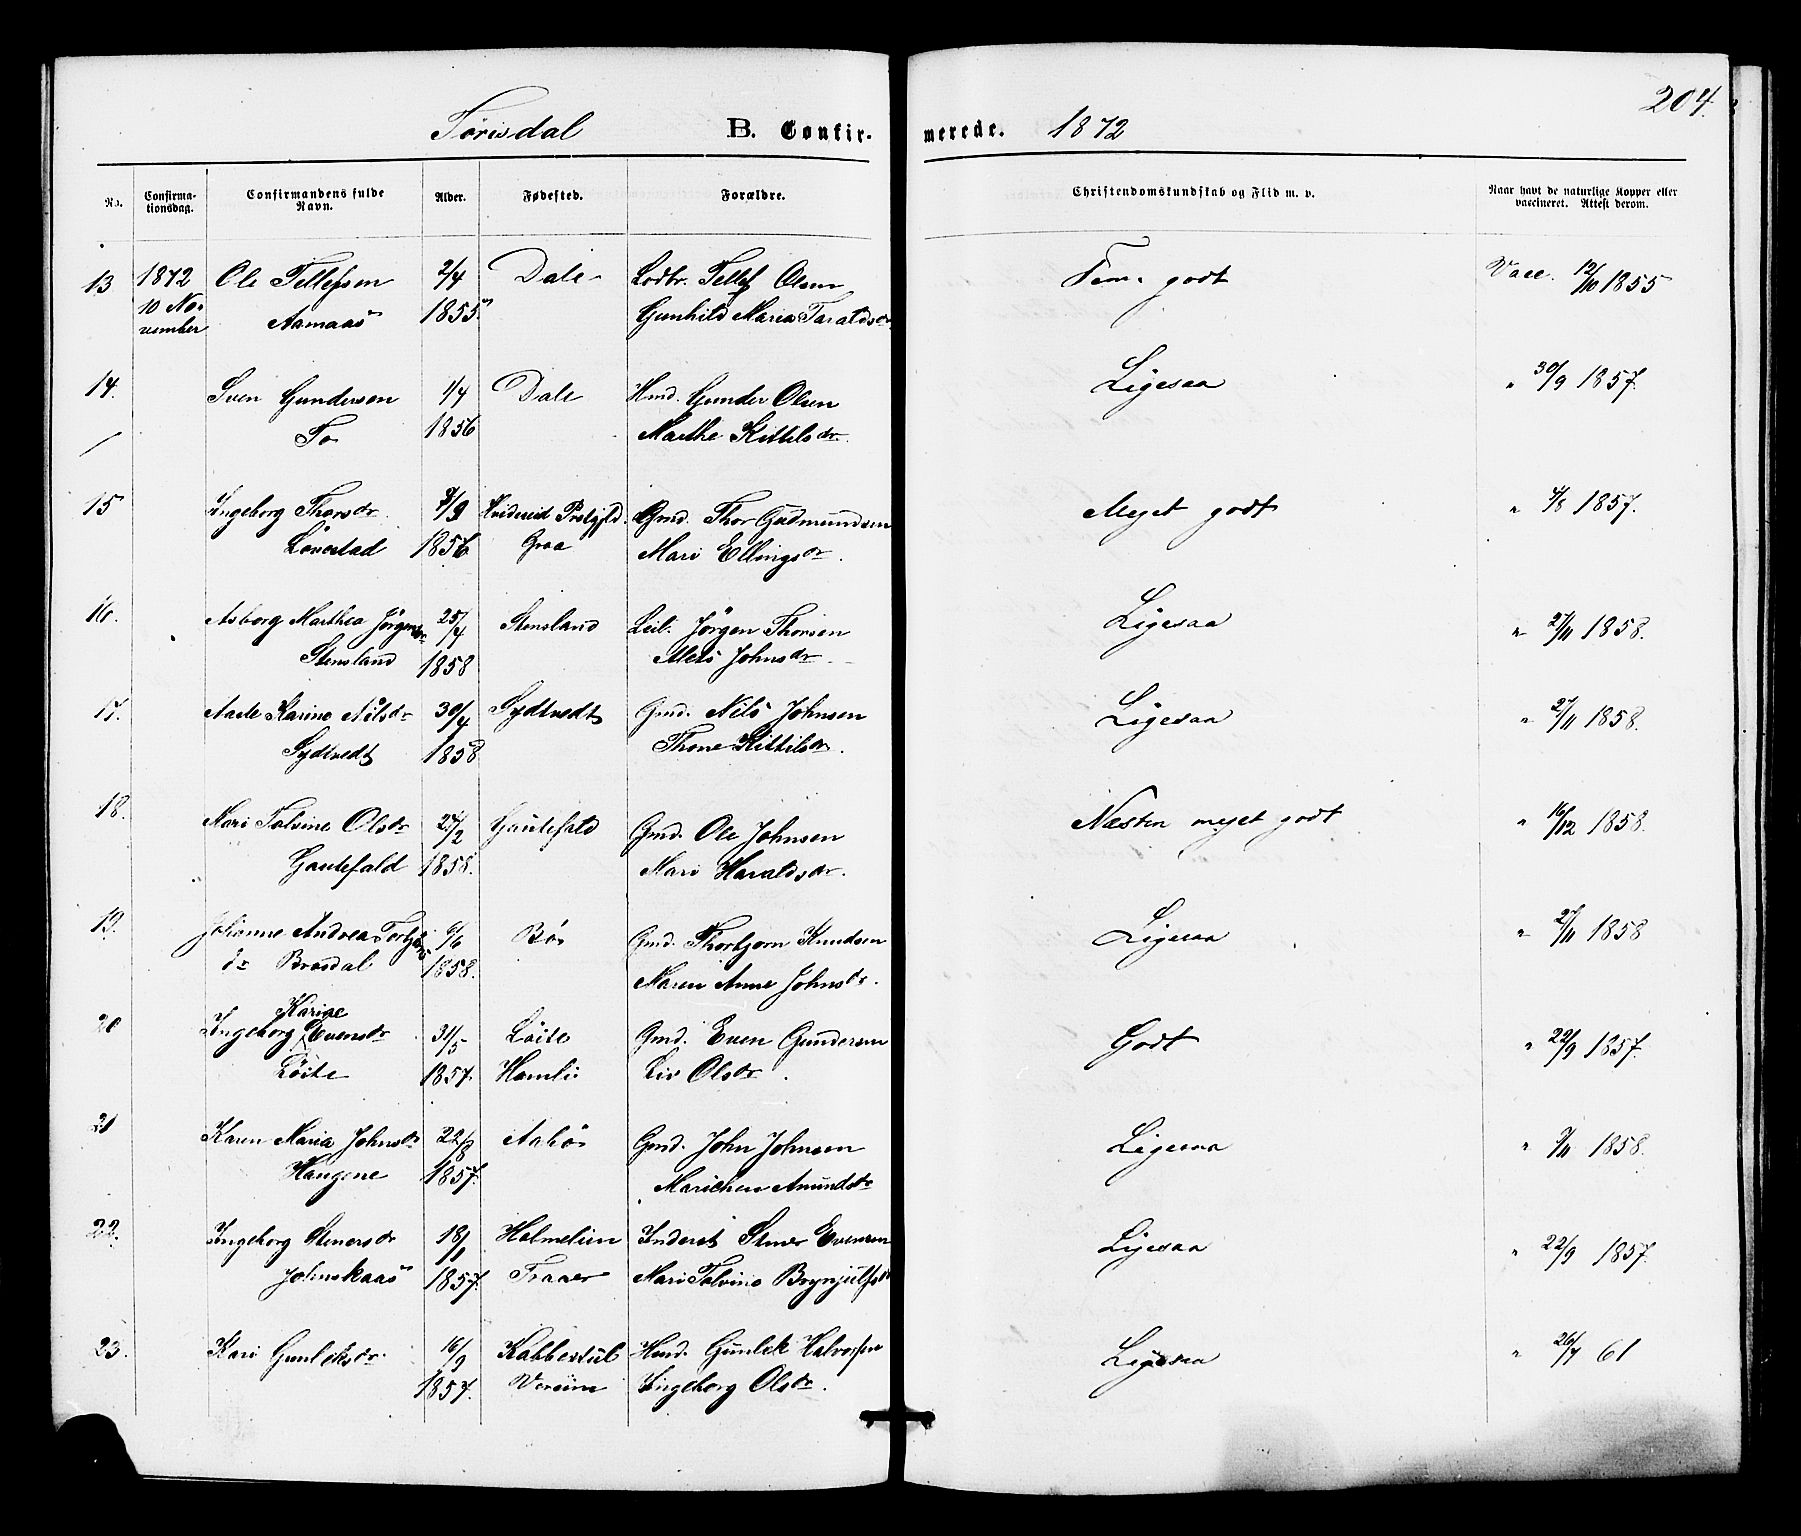 204.
Törisdal B. Confirmerede. 1872
No. Confirmationsdag. Confirmandens fulde Navn. Alder. Fødested. Forældre. Christendomskundskab og Flid m. v. Naar havt de naturlige Kopper eller vaccineret. Attest derom.
13 1872 Ole Tellefsen 2/4 Dale Lodbr. Tellef Olsen Tem. godt Vacc. 12/10 1855
10 November Aamaas 1855 Gunhild Maria Taraldsdr
14. Sven Gundersen 1/4 Dale Hmd. Gunder Olsen Ligesaa " 30/9 1857.
To 1856 Marthe Kittilsdr.
15 Ingeborg Thorsdr. 7/9 Hvidereid Prstgjld. Gmd. Thor Gudmundsen Meget godt " 4/8 1857.
Lövestad 1856 Graa Mari Ellingsdr.
16. Asborg Marthea Jörgensdr 25/4 Stensland Leil. Jörgen Thorsen Ligesaa " 27/11 1858.
Stensland 1858 Alets Johnsdr.
17. Aaste Karine Nilsdr 30/4 Sydtvedt Gmd. Nils Johnsen Ligesaa " 27/11 1858.
Sydtvedt 1858 Thone Kittilsdr.
18. Mari Tolvine Olsdr 27/2 Gautefald Gmd. Ole Johnsen Næsten meget godt " 16/12 1858.
Gautefald 1858. Mari Haraldsdr.
19. Johanne Andrea Torbj 9/6 Bö Gmd. Thorbjorn Knudsen Ligesaa " 27/11 1858
dr Brosdal 1858. Maren Anne Johnsdr.
Karine
20 Ingeborg Evensdr 31/5 Löite Gmd. Even Gundersen Godt " 22/9 1857.
Löite 1857. Hamli Liv Olsdr.
21 Karen Maria Johnsdr 22/8 Aabö Gmd. John Johnsen Ligesaa " 9/11 1858.
Haugene 1857. Marichen Amundsdr
22. Ingeborg Stenersdr 18/1 Holmelien Inderst Stener Evensen Ligesaa " 22/9 1857.
Johnskaas 1857. Traaer Mari Tolvine Brynjulfsdr
23. Kari Gunleksdr. 16/9 Kabbestul Hmd. Gunlek Halvorsen Ligesaa " 26/7 61
1857. Veruim Ingeborg Olsdr.